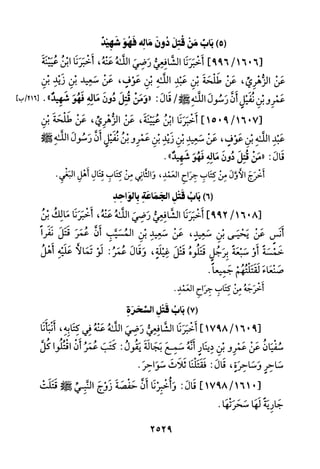 (٥) بَابُ مَنْ قُتِلَ دُونَ مَالِهِ فَهُوَ شَهِيدٌ
[٩٩٦/١٦٠٦] أَخْبَرَنَا الشَّافِعِيُّ رَضِيَ اللَّهُ عَنْهُ، أَخْبَرَنَا ابْنُ عُيَيْنَةَ
عَنِ الزُّهْرِيِّ، عَنْ طَلْحَةَ بْنِ عَبْدِ اللَّهِ بْنِ عَوْفٍ، عَنْ سَعِيدِ بْنِ زَيْدِ بْنِ
عَمْرِو بْنِ نُفَيْلٍ أَنَّ رَسُولَ اللَّهِ ﷺ/ قَالَ: «وَمَنْ قُتِلَ دُونَ مَالِهِ فَهُوَ شَهِيدٌ». [٢١٦/ب]
[١٥٠٩/١٦٠٧] أَخْبَرَنَا ابْنُ عُيَيْنَةَ، عَنِ الزُّهْرِيِّ، عَنْ طَلْحَةَ بْنِ
عَبْدِ اللَّهِ بْنِ عَوْفٍ، عَنْ سَعِيدِ بْنِ زَيْدِ بْنِ عَمْرِو بْنِ نُفَيْلٍ أَنَّ رَسُولَ اللَّهِ ﷺ
قَالَ: «مَنْ قُتِلَ دُونَ مَالِهِ فَهُوَ شَهِيدٌ».
أَخْرَجَ الأَوَّلَ مِنْ كِتَابِ جِرَاحِ الْعَمْدِ، وَالثَّانِي مِنْ كِتَابِ قِتَالِ أَهْلِ الْبَغْيِ.
(٦) بَابُ قَتْلِ الْجَمَاعَةِ بِالْوَاحِدِ
[٩٩٢/١٦٠٨] أَخْبَرَنَا الشَّافِعِيُّ رَضِيَ اللَّهُ عَنْهُ، أَخْبَرَنَا مَالِكُ بْنُ
أَنَسٍ عَنْ يَحْيَى بْنِ سَعِيدٍ، عَنْ سَعِيدِ بْنِ الْمُسَيَّبِ أَنَّ عُمَرَ قَتَلَ نَفَراً
خَمْسَةً أَوْ سَبْعَةً بِرَجُلٍ قَتَلُوهُ قَتْلَ غِيْلَةٍ، وَقَالَ عُمَرُ: لَوْ تَمَالَأَ عَلَيْهِ أَهْلُ
صَنْعَاءَ لَقَتَلْتُهُمْ جَمِيعاً.
أَخْرَجَهُ مِنْ كِتَابِ جِرَاحِ الْعَمْدِ.
(٧) بَابُ قَتْلِ السَّحَرَةِ
[١٧٩٨/١٦٠٩] أَخْبَرَنَا الشَّافِعِيُّ رَضِيَ اللَّهُ عَنْهُ فِي كِتَابِهِ، أَنْبَأَنَا
سُفْيَانُ عَنْ عَمْرِو بْنِ دِينَارٍ أَنَّهُ سَمِعَ بَجَالَةَ يَقُولُ: كَتَبَ عُمَرُ أَنِ اقْتُلُوا كُلَّ
سَاحِرٍ وَسَاحِرَةٍ، قَالَ: فَقَتَلْنَا ثَلَاثَ سَوَاحِرَ.
[١٧٩٨/١٦١٠] قَالَ: وَأُخْبِرْنَا أَنَّ حَفْصَةَ زَوْجَ النَّبِيِّ ﷺ قَتَلَتْ
جَارِيَةً لَهَا سَحَرَتْهَا.
٢٥٢٩